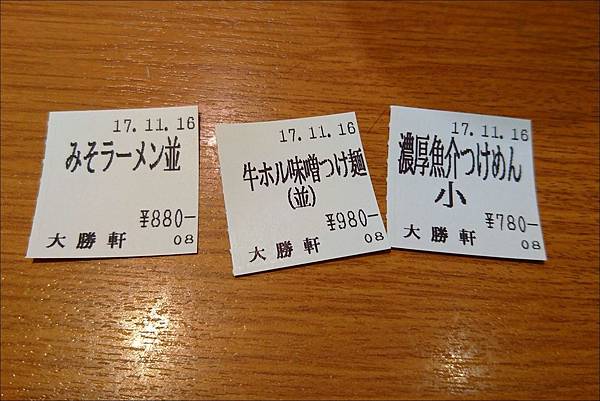 17.11.16
みそラーメン並
¥880-
大勝軒
08
17.11.16
牛ホル味噌つけ麺
(並)
¥980-
大勝軒
08
17.11.16
濃厚魚介つけめん
小
¥780-
大勝軒
08